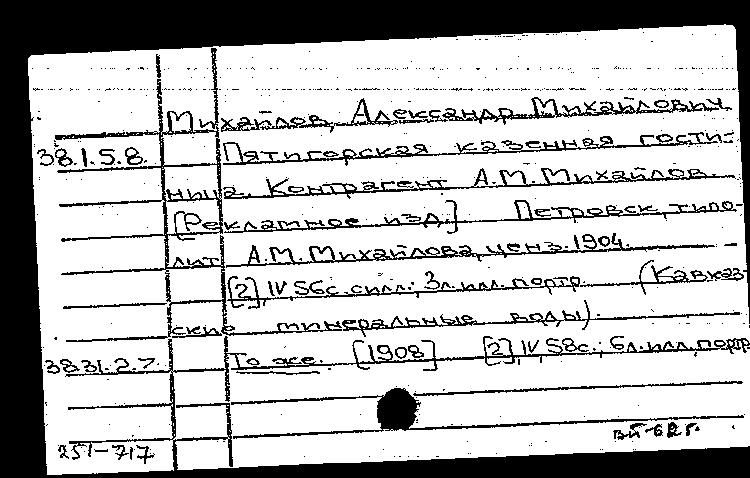 Михайлов, Александр Михайлович.
38.1.5.8. Пятигорская казенная гости-
ница. Контрагент А.М. Михайлов.
[Рекламное изд.] Петровск, типо-
лит. А.М. Михайлова, ценз. 1904.
[2], IV, 56с. с илл.; 3л. илл. портр. (Кавказ-
ские минеральные воды).
38.31.2.7. То же. [1908] [2], IV, 58с.; 6л. илл., портр
251-717